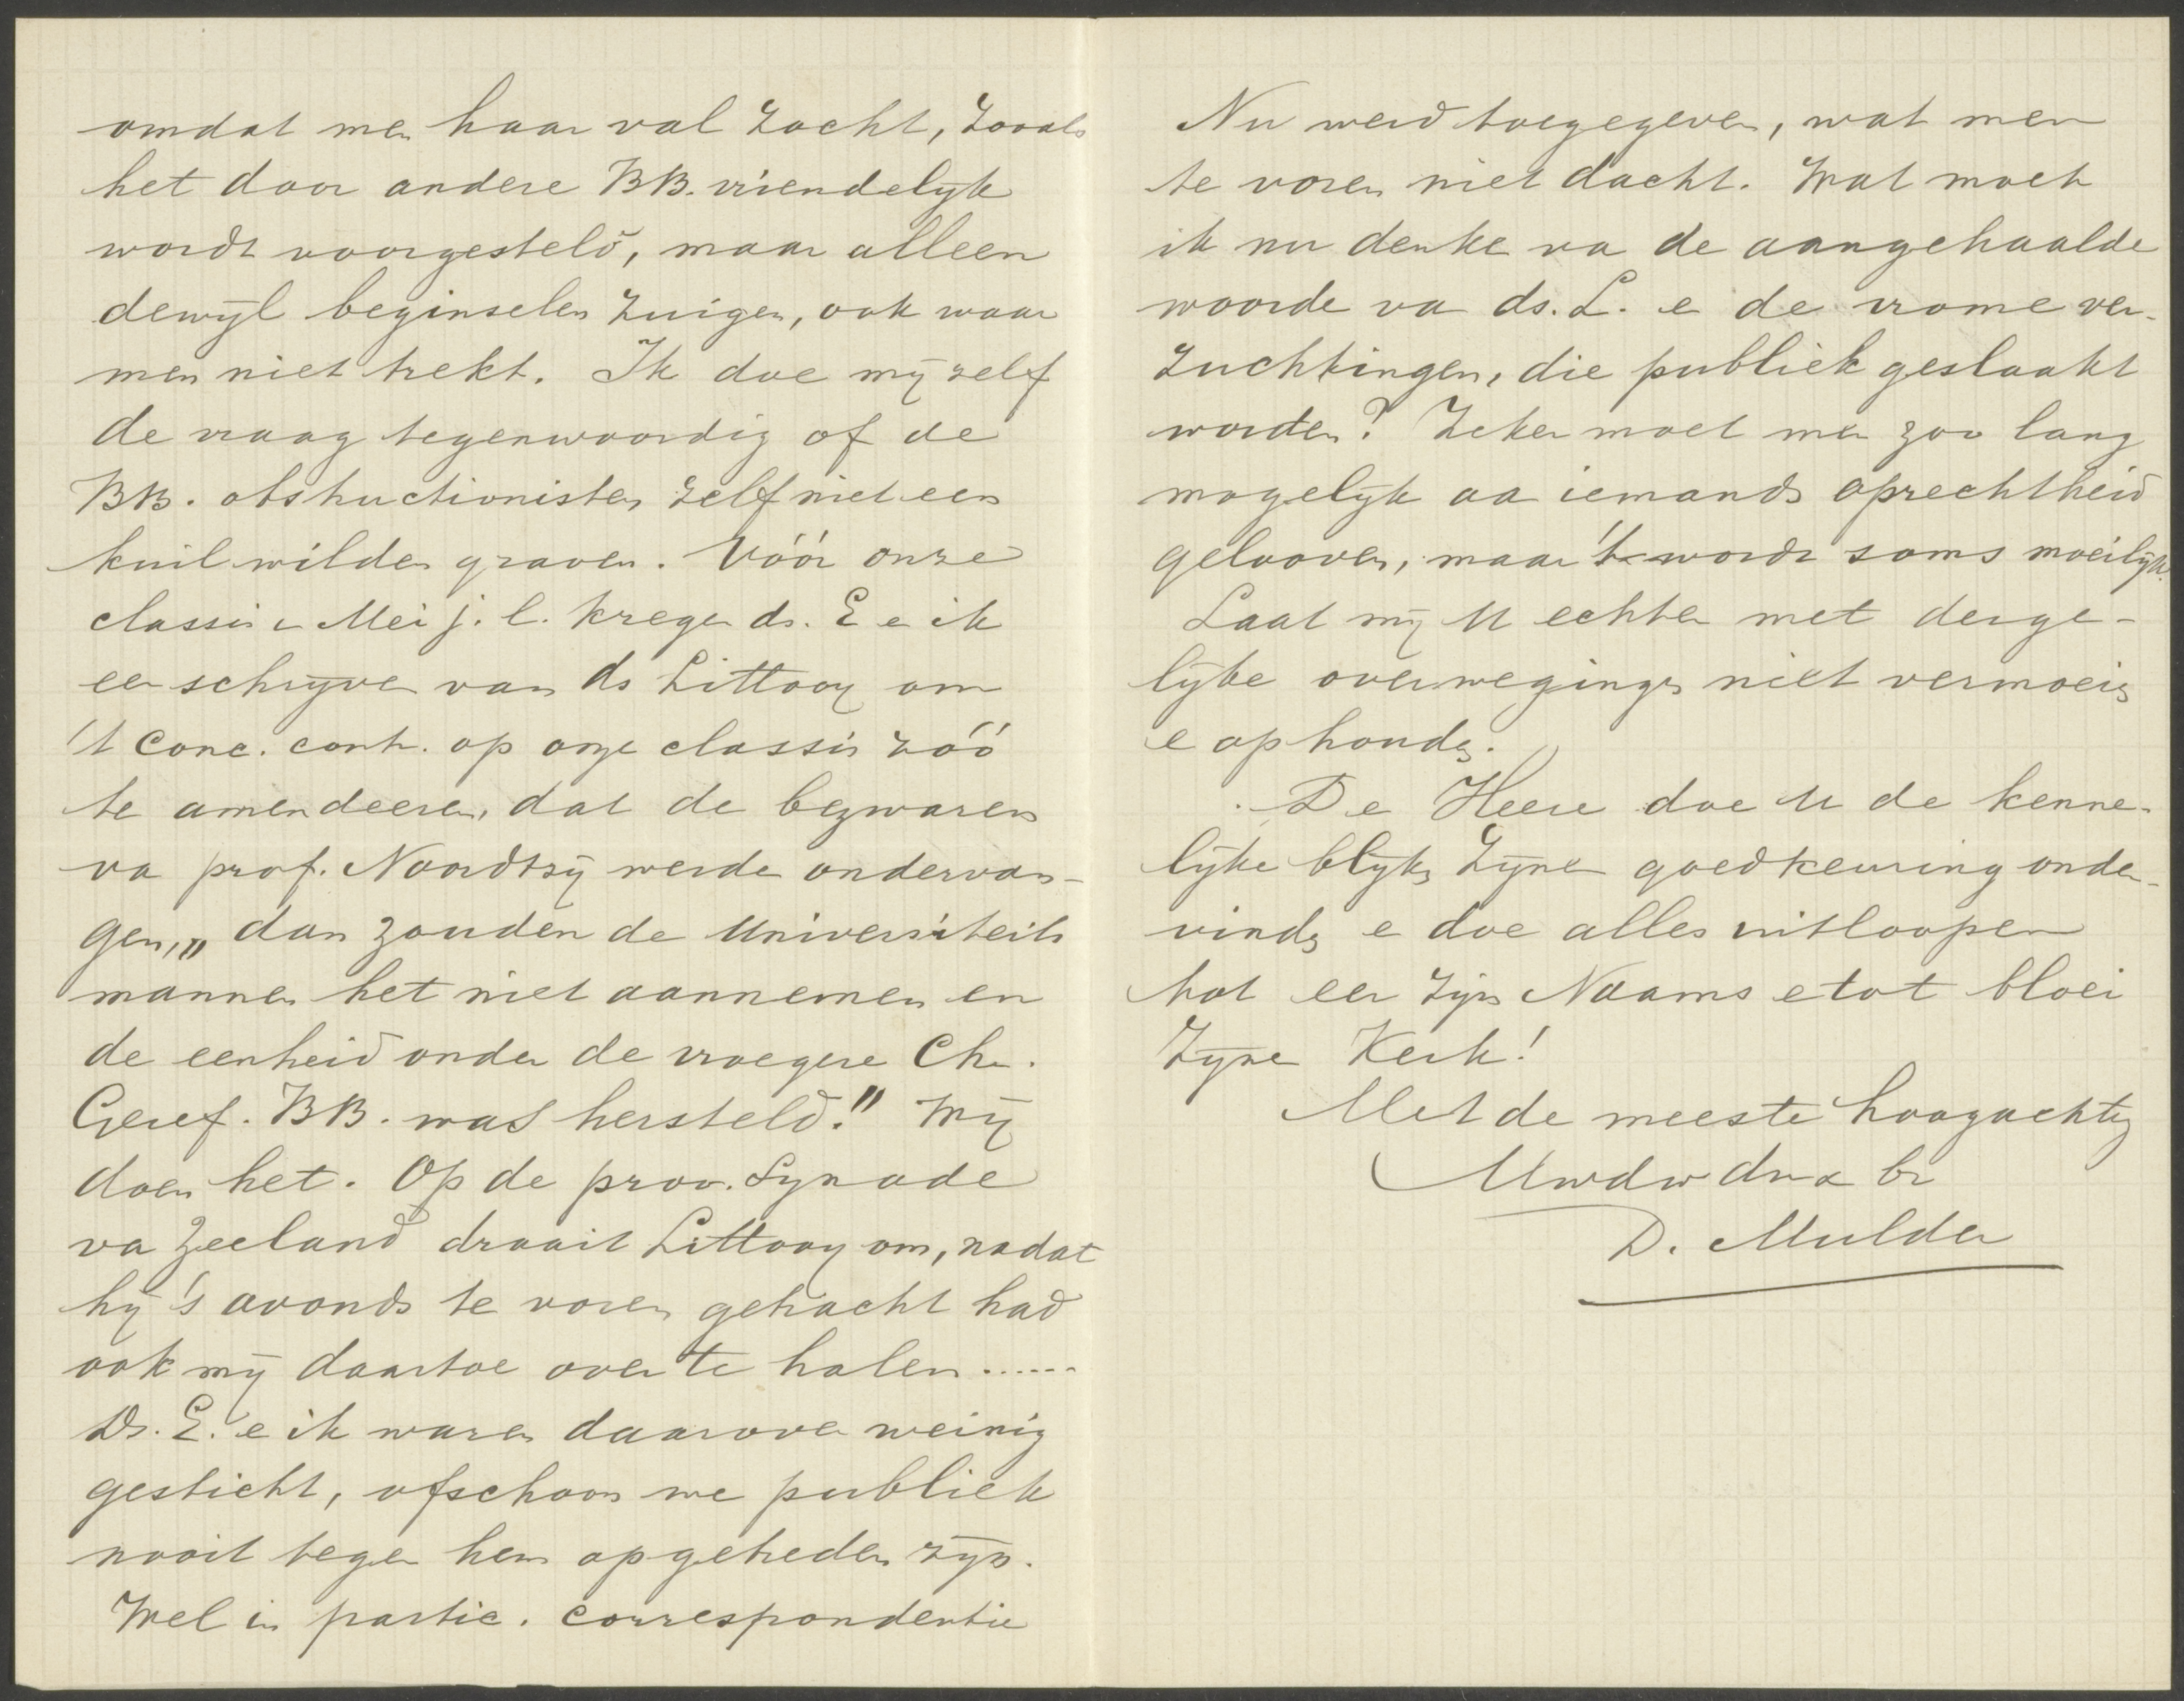 omdat men haar val zocht, zooals
het door andere BB. vriendelijk
wordt voorgesteld, maar alleen
dewijl beginselen zuigen, ook waar
men niet trekt. Ik doe mij zelf
de vraag tegenwoordig of de
BB. obstructionisten zelf niet een
kuil wilden graven. Vóór onze
classis in Mei j.l. kregen ds. E en ik
een schrijven van ds Littooy om
't conc. contr. op onze classis zóó
te amendeeren, dat de bezwaren
van prof. Noordtzij werden ondervan-
gen, „dan zouden de Universiteits
mannen het niet aannemen en
de eenheid onder de vroegere Chr.
Geref. BB. was hersteld!" Wij
doen het. Op de prov. Synode
van Zeeland draait Littooy om, nadat
hij 's avonds te voren getracht had
ook mij daartoe over te halen......
Ds. E. en ik waren daarover weinig
gesticht, ofschoon we publiek
nooit tegen hem opgetreden zijn.
Wel in partic. correspondentie
Nu werd toegegeven, wat men
te voren niet dacht. Wat moet
ik nu denken van de aangehaalde
woorden van ds. L. en de vrome ver-
zuchtingen, die publiek geslaakt
worden? Zeker moet men zoo lang
mogelijk aan iemands oprechtheid
gelooven, maar 't wordt soms moeilijk.
Laat mij U echter met derge-
lijke overwegingen niet vermoeien
en ophouden.
De Heere doe U de kenne-
lijke blijken Zijner goedkeuring onder-
vinden en doe alles uitloopen
tot eer Zijns Naams en tot bloei
Zijner Kerk!
Met de meeste hoogachting
Uwdw dnr & br
D. Mulder